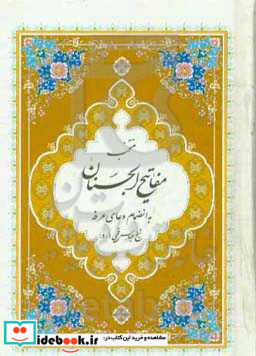 منتخب
مفاتیح الجنان
به انضمام دعای عرفه
شیخ عباس قمی (ره)
مشاهده و خرید این کتاب در:
idebook.ir